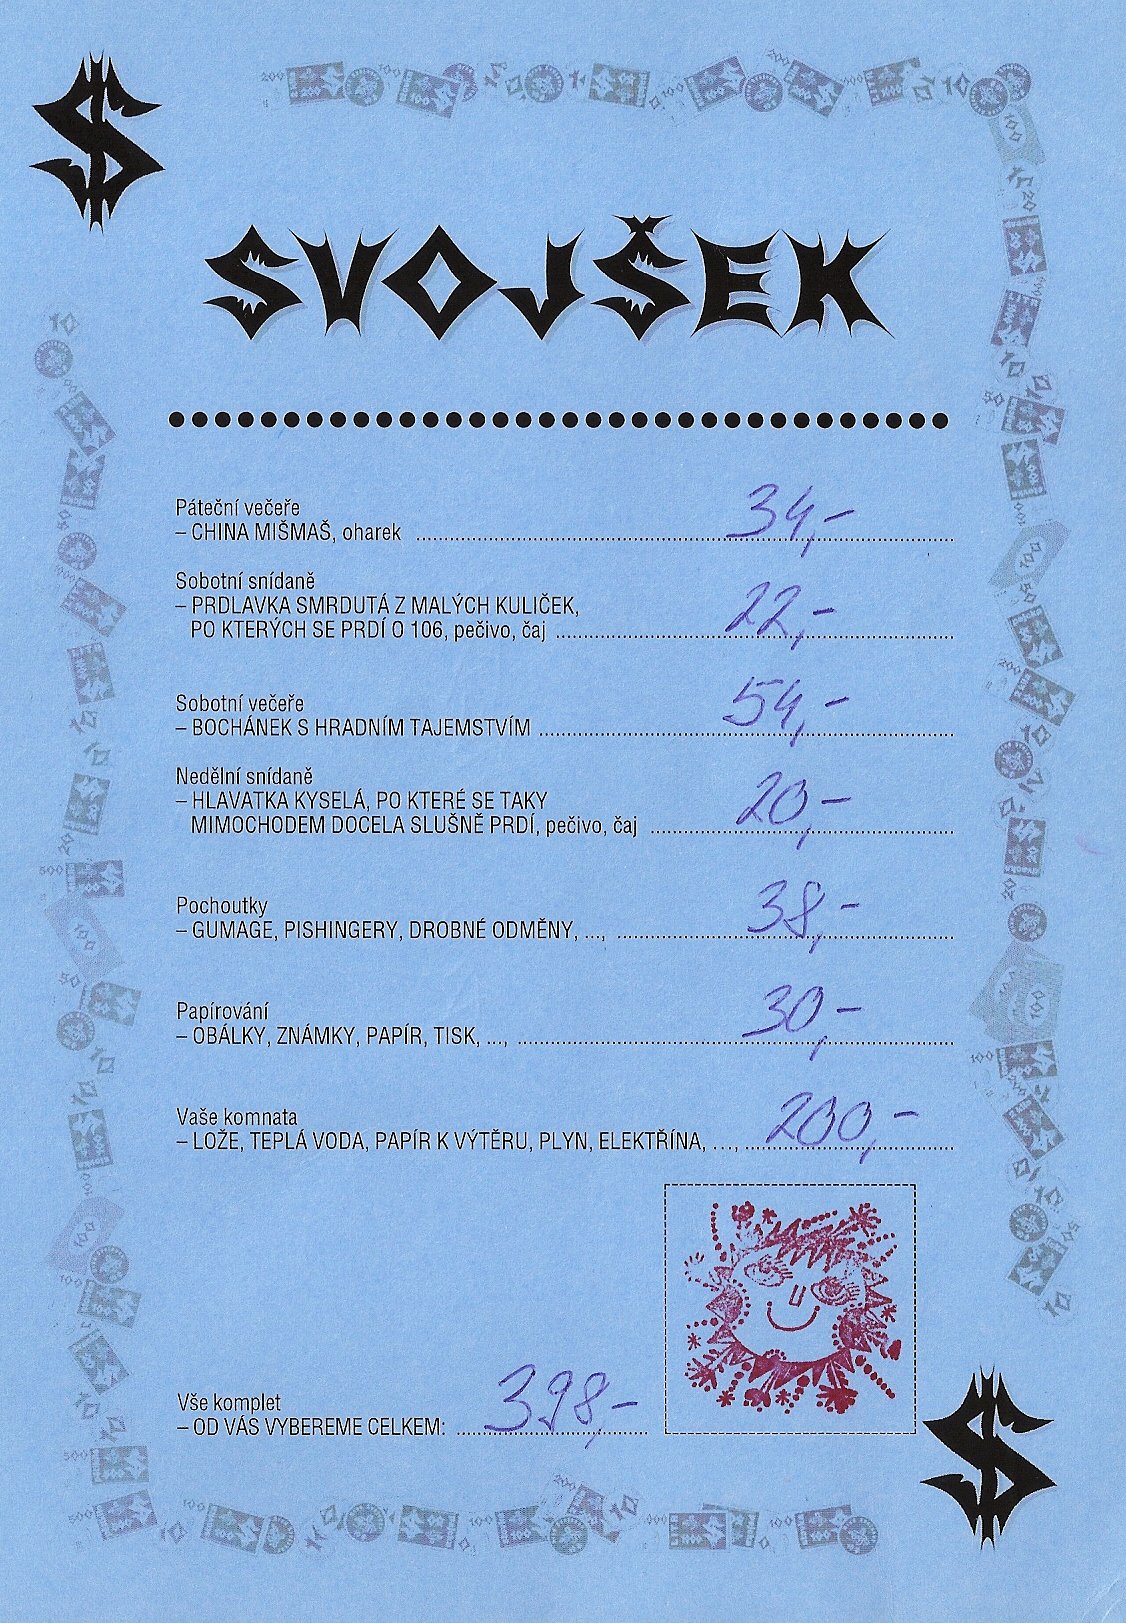 $
SVOJŠEK
Páteční večeře
– CHINA MIŠMAŠ, oharek 34,-
Sobotní snídaně
– PRDLAVKA SMRDUTÁ Z MALÝCH KULIČEK,
PO KTERÝCH SE PRDÍ O 106, pečivo, čaj 22,-
Sobotní večeře
– BOCHÁNEK S HRADNÍM TAJEMSTVÍM 54,-
Nedělní snídaně
– HLAVATKA KYSELÁ, PO KTERÉ SE TAKY
MIMOCHODEM DOCELA SLUŠNĚ PRDÍ, pečivo, čaj 20,-
Pochoutky
– GUMAGE, PISHINGERY, DROBNÉ ODMĚNY, ..., 38,-
Papírování
– OBÁLKY, ZNÁMKY, PAPÍR, TISK, ..., 30,-
Vaše komnata
– LOŽE, TEPLÁ VODA, PAPÍR K VÝTĚRU, PLYN, ELEKTŘINA, ..., 200,-
Vše komplet
– OD VÁS VYBEREME CELKEM: 398,-
$